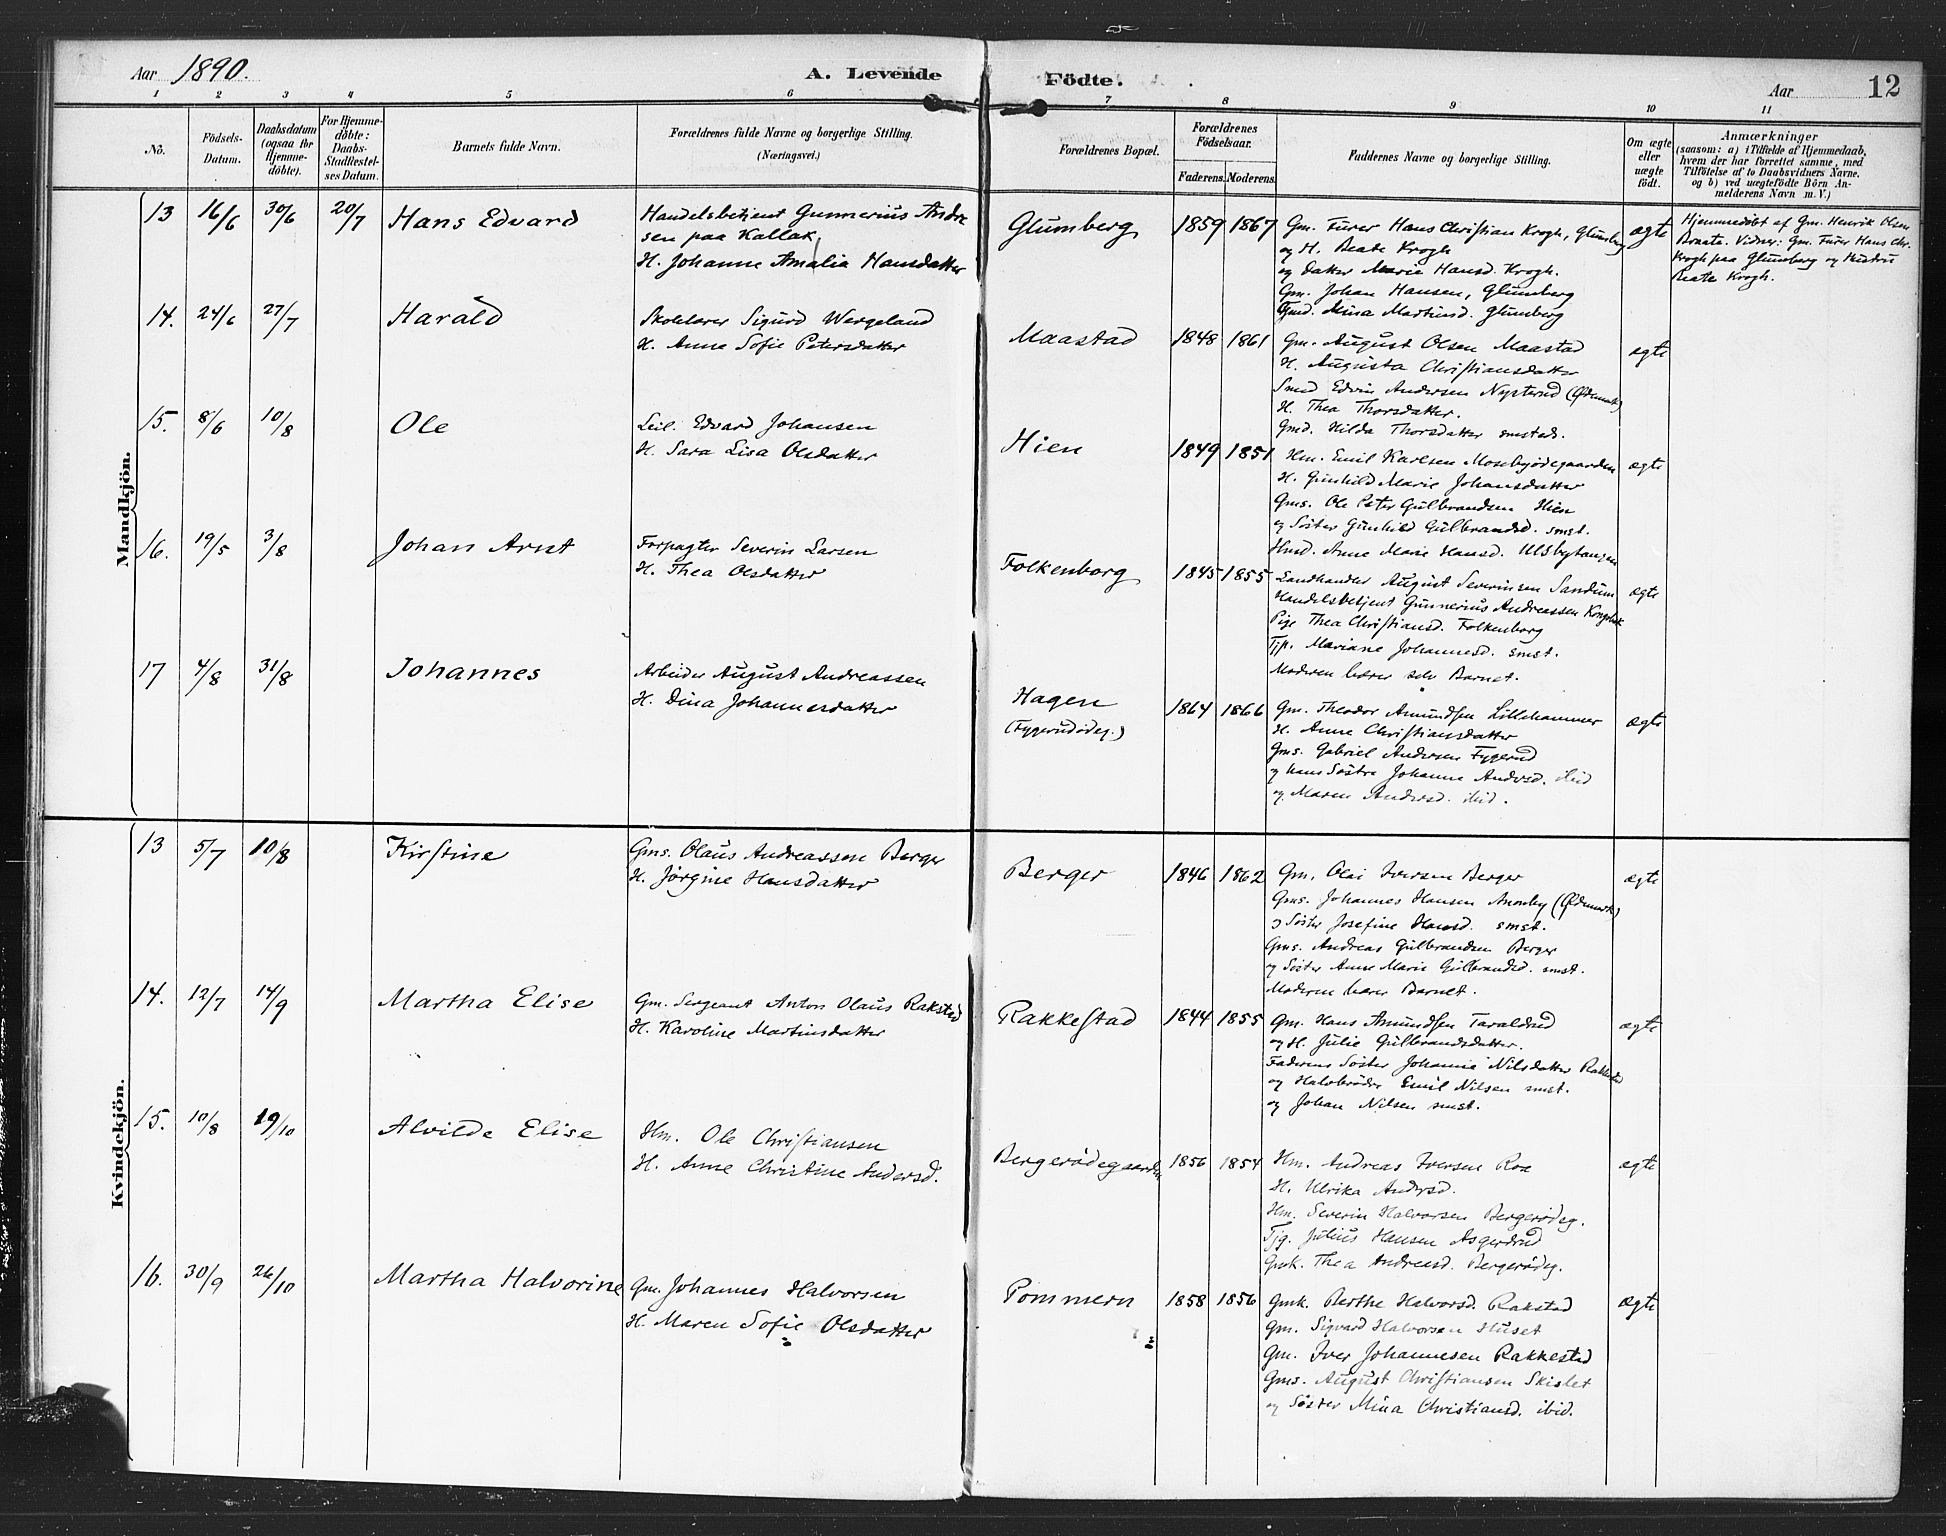 Aar 1890.
A. Levende Födte.
Aar
12
1 2 3 4 5 6 7 8 9 10 11
No.
Födsels-
Datum.
Daabsdatum
(ogsaa for
Hjemme-
döbte).
For Hjemme-
döbte:
Daabs-
Stadfæstel-
ses Datum.
Barnets fulde Navn.
Forældrenes fulde Navne og borgerlige Stilling.
(Næringsvei.)
Forældrenes Bopæl.
Forældrenes
Födselsaar.
Faderens. Moderens.
Faddernes Navne og borgerlige Stilling.
Om ægte
eller
uægte
födt.
Anmærkninger
(saasom: a) i Tilfælde af Hjemmedaab,
hvem der har forrettet samme, med
Tilföielse af to Daabsvidners Navne,
og b) ved uægtefödte Börn An-
melderens Navn m. V.)
Mandkjön.
13 16/6 30/6 20/7 Hans Edvard
Handelsbetjent Gunnerius Andre
sen paa Kallak
H. Johanne Amalia Hansdatter
Glumberg 1859 1867
Gm. Furer Hans Christian Krogh, Glumberg
og H. Beate Krogh
og datter Marie Hansd. Krogh.
Gm. Johan Hansen, Glumberg
Gmd. Mina Martinsd. Glumberg
ægte
Hjemmedøbt af Gm. Henrik Olsen
Vidner: Gm. Furer Hans Chr.
Krogh paa Glumberg og Hustru
Beate Krogh.
14. 24/6 27/7 Harald
Skolelærer Sigurd Wergeland
H. Anne Sofie Petersdatter
Maastad 1848 1861
Gm. August Olsen Maastad
H. Augusta Christiansdatter
Smed Edvin Andersen Nysterud (Ødemark)
H. Thea Thorsdatter.
Gmd. Hilda Thorsdatter smstds.
ægte
15. 8/6 10/8 Ole
Leil. Edvard Johansen
H. Sara Lisa Olsdatter
Hien 1849 1851
Hm. Emil Karlsen Mosebyødegaarden
H. Gunhild Marie Johansdatter
Gms. Ole Peter Gulbrandsen Hien
og Søster Gunhild Gulbrandsd. smst.
Husd. Anne Marie Hansd. Ulsbytangen
ægte
16. 19/5 3/8 Johan Arnt
Forpagter Severin Larsen
H. Thea Olsdatter
Folkenborg 1845 1855
Landhandler August Severinsen Sandum
Handelsbetjent Gunnerius Andreassen
Pige Thea Christiansd. Folkenborg
Tjp. Mariane Johannesd. smst.
Moderen bærer selv Barnet.
ægte
17 4/8 31/8 Johannes
Arbeider August Andreassen
H. Dina Johannesdatter
Hagen
(Fygerudødeg.)
1864 1866
Gm. Theodor Amundsen Lillehammer
H. Anne Christiansdatter
Gms. Gabriel Andersen Fygerud
og hans Søstre Johanne Andersd. ibid
og Maren Andersd. ibid.
ægte
Kvindekjön.
13 5/7 10/8 Kirstine
Gms. Olaus Andreassen Berger
H. Jørgine Hansdatter
Berger 1846 1862
Gm. Olai Iversen Berger
Gms. Johannes Hansen Monby (Ødemark)
og Søster Josefine Hansd. smst.
Gms. Andreas Gulbrandsen Berger
og Søster Anne Marie Gulbrandsd. smst.
Moderen bærer Barnet.
ægte
14. 12/7 14/9 Martha Elise
Gm. Sergeant Anton Olaus Rakstad
H. Karoline Martinsdatter
Rakkestad 1844 1855
Gm. Hans Amundsen Taraldrud
og H. Julie Gulbrandsdatter.
Faderens Søster Johanne Nilsdatter Rakkestad
og Halvbrøder Emil Nilsen smst.
og Johan Nilsen smst.
ægte
15. 10/8 19/10 Alvilde Elise
Hm. Ole Christiansen
H. Anne Christine Andersd.
Bergerødegaarden 1856 1854
Hm. Andreas Iversen Roa
H. Ulrika Andersd.
Hm. Severin Halvorsen Bergerødeg.
Tjg. Julius Hansen Asgerdrud
Gmk. Thea Andreasd. Bergerødeg.
ægte
16. 30/9 26/10 Martha Halvorine
Gm. Johannes Halvorsen
H. Maren Sofie Olsdatter
Pommern 1858 1856
Gmk. Berthe Halvorsd. Rakstad
Gm. Sigvard Halvorsen Huset
Gm. Iver Johannesen Rakkestad
Gms. August Christiansen Skislet
og Søster Mina Christiansd. ibid.
ægte